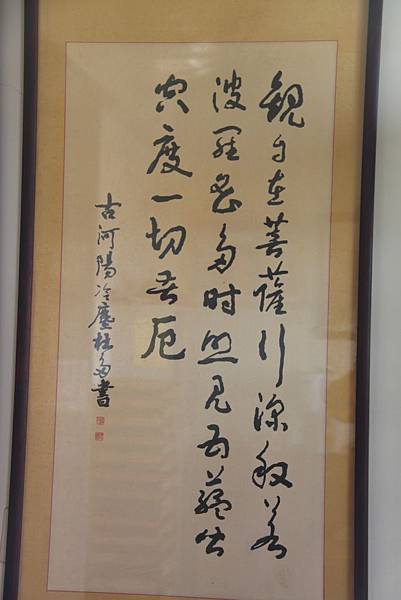 觀自在菩薩行深般若
波羅蜜多時照見五蘊皆
空度一切苦厄
古河陽冷塵杜多書